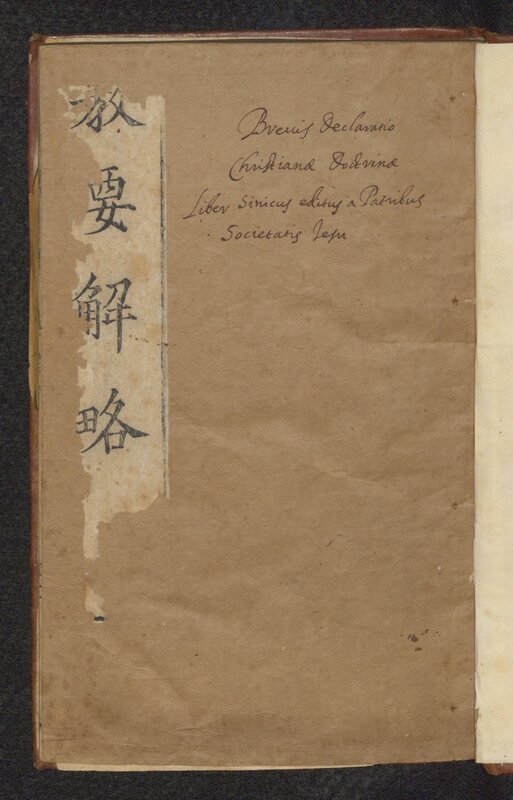 教要解略
Brevis declaratio
Christianæ doctrinæ
Liber Sinicus editus a Patribus
Societatis Iesu